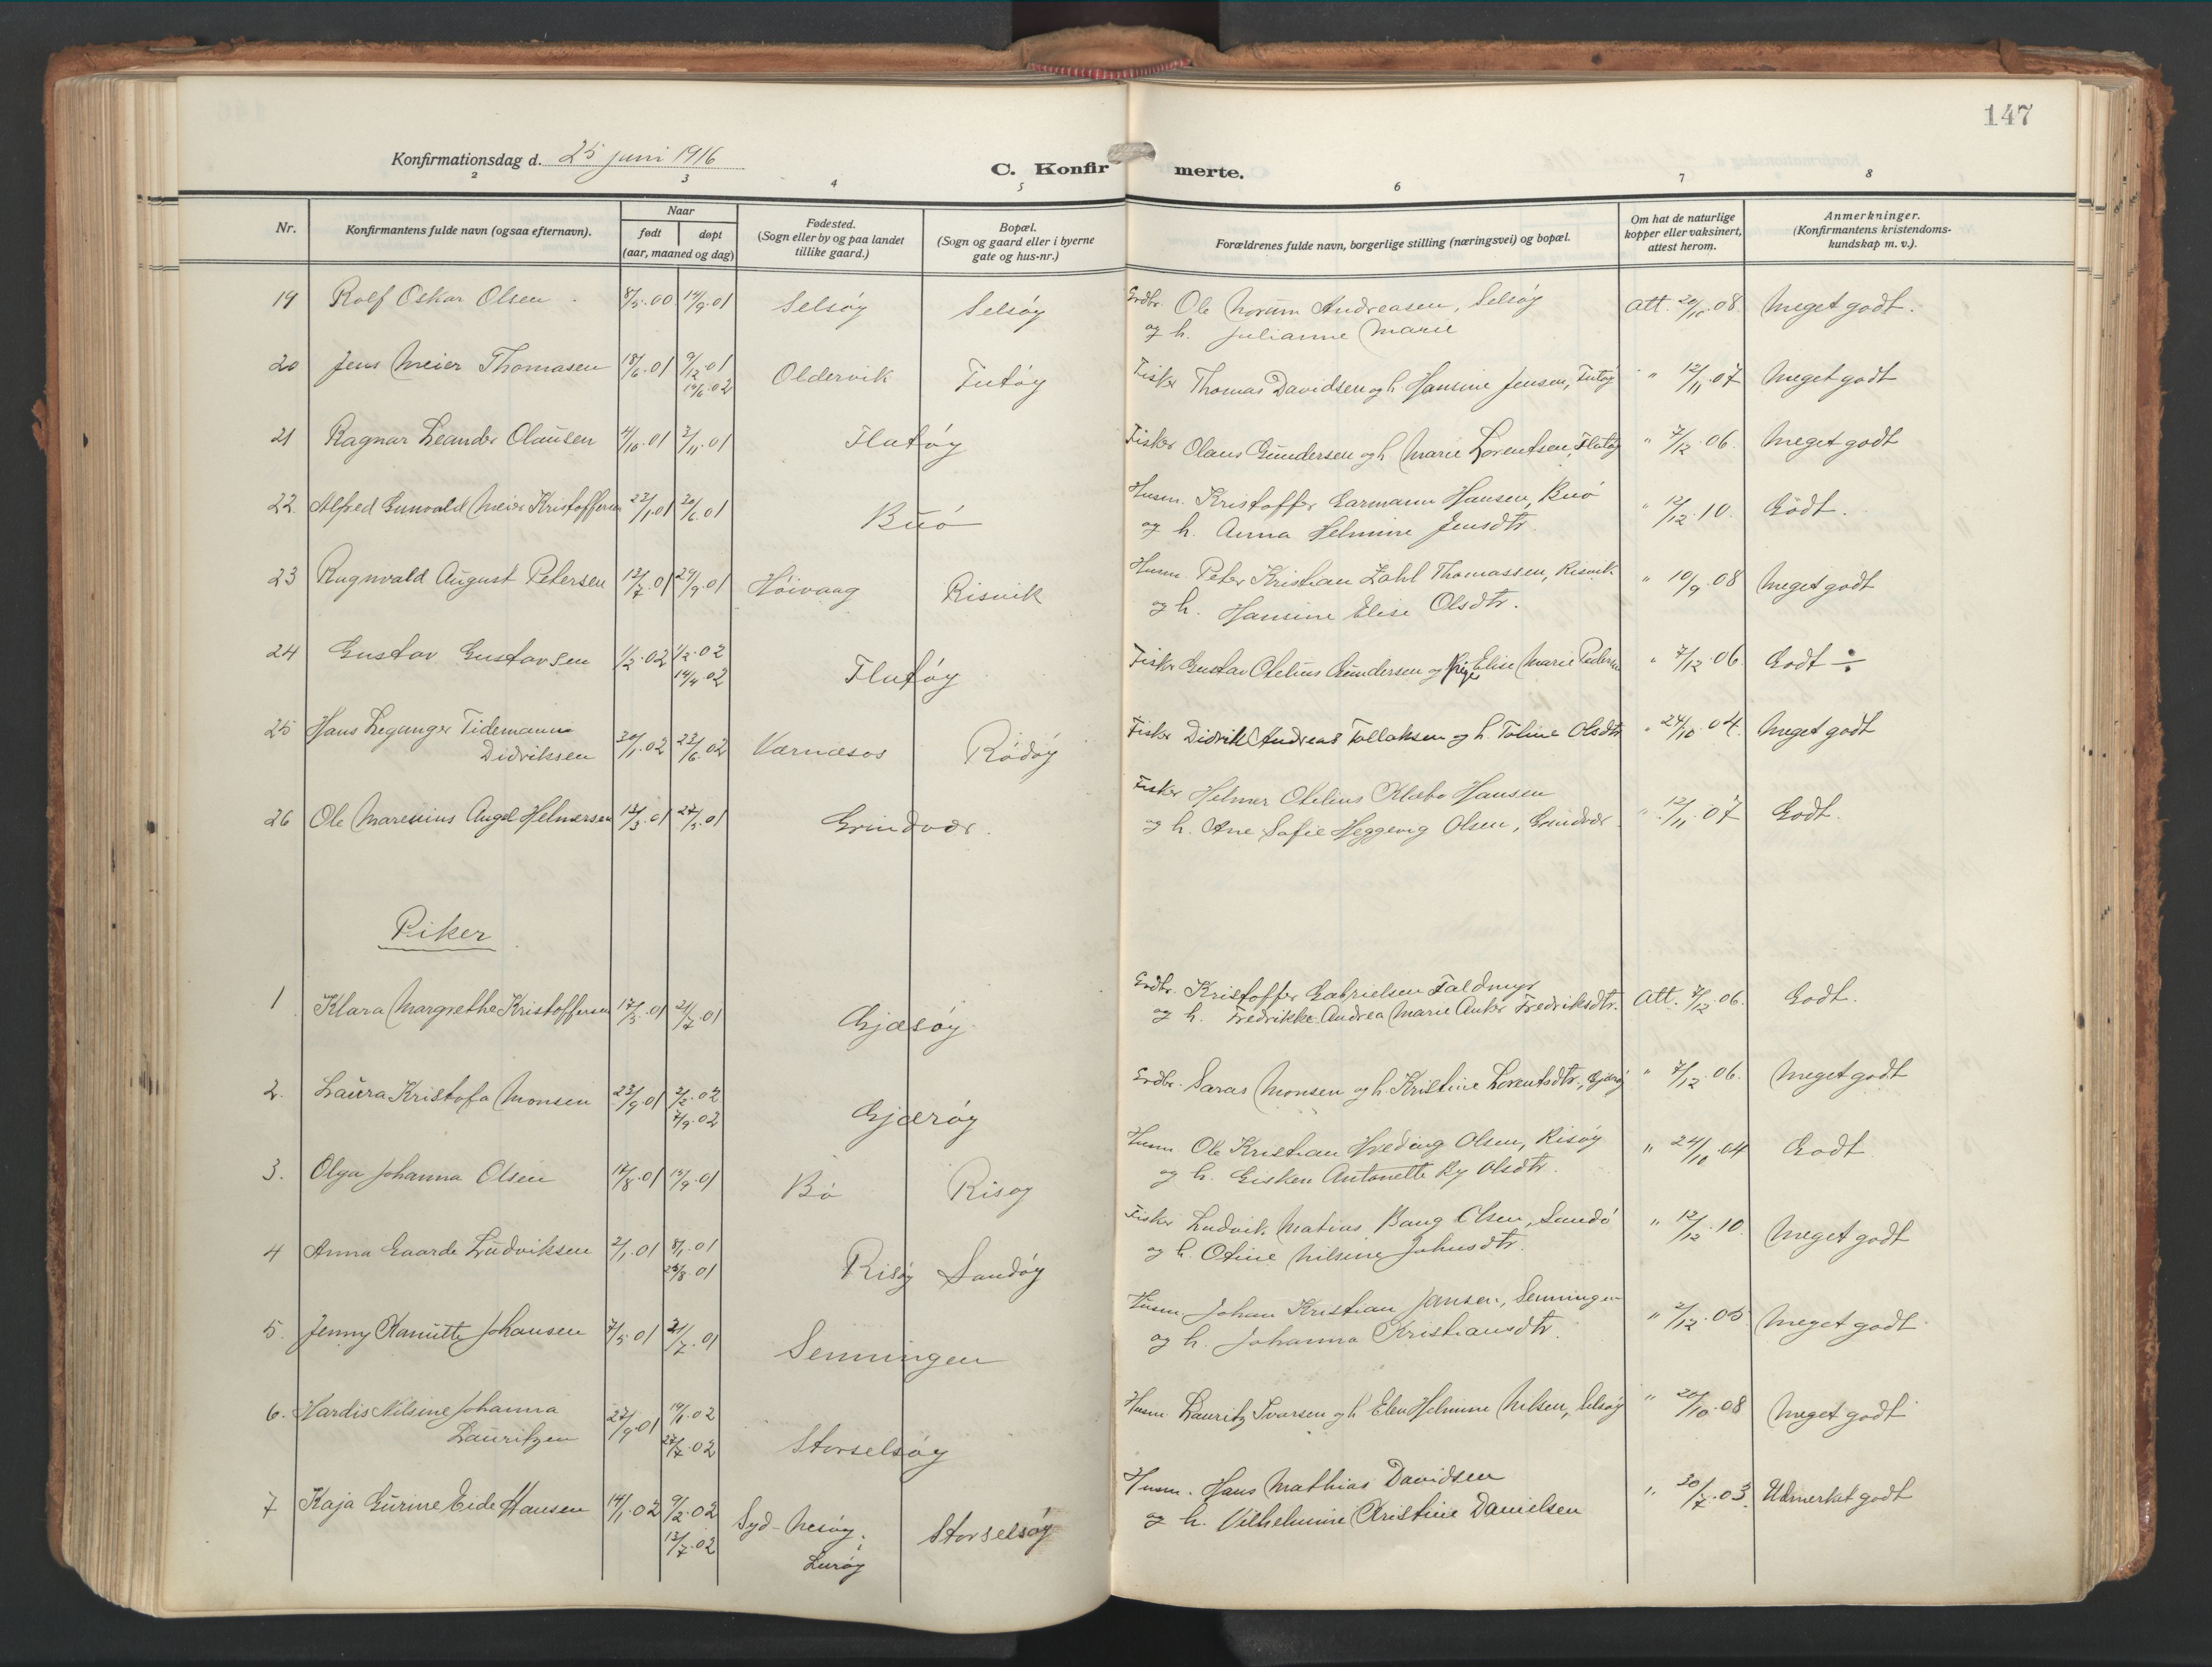 147
Konfirmationsdag d. 25 juni 1916
C. Konfirmerte.
2 3 4 5 6 7 8
Nr.
Konfirmantens fulde navn (ogsaa efternavn).
Naar
født døpt
(aar, maaned og dag)
Fødested.
(Sogn eller by og paa landet
tillike gaard.)
Bopæl.
(Sogn og gaard eller i byerne
gate og hus-nr.)
Forældrenes fulde navn, borgerlige stilling (næringsvei) og bopæl.
Om hat de naturlige
kopper eller vaksinert,
attest herom.
Anmerkninger.
(Konfirmantens kristendoms-
kundskap m. v.).
19 Rolf Oskar Olsen 8/5.00 14/9.01 Selsøy Selsøy Grdbr. Ole Norum Andreasen, Selsøy Att. 20/10.08 Meget godt.
og h. Julianne Marie
20 Jens Meier Thomasen 18/6.01 9/12.01 Oldervik Tutøy Fisker Thomas Davidsen og h. Hansine Jensen, Tutøy " 12/11.07 Meget godt
19/6.02
21 Ragnar Leander Olausen 4/10.01 3/11.01 Flatøy Fisker Olaus Gundersen og h. Marie Lorentsen, Flatøy " 7/12.06. Meget godt
22 Alfred Gunvald Meier Kristoffersen 22/1.01 30/6.01 Buø Husm. Kristoffer Garmann Hansen, Buø " 12/12.10. Godt.
og h. Anna Helmine Jensdtr.
23 Ragnvald August Petersen 13/7.01 29/9.01 Høivaag Risvik Husm. Peter Kristian Zahl Thomassen, Risvik " 10/9.08 Meget godt
og h. Hansine Elise Olsdtr.
24 Gustav Gustavsen 1/2.02 1/2.02 Flatøy Fisker Gustav Otelius Gundersen og Pige Elise Marie Pedersen " 7/12.06. Godt ÷
14/4.02
25 Hans Leganger Tidemann
Didriksen 30/1.02 23/6.02 Værnæsos Rødøy Fisker Didrik Andreas Tollaksen og h. Toline Olsdtr " 24/10.04. Meget godt
26 Ole Marenius Angel Helmersen 13/3.01 27/5.01 Grindvær. Fisker Helmer Otelius Klæbo Hansen " 12/11.07 Godt.
og h. Ane Sofie Heggevig Olsen, Grindvær
Piker
1 Klara Margrethe Kristoffersen 17/5.01 21/7.01 Gjæsøy. Grdbr. Kristoffer Gabrielsen Faldmyr Att. 7/12.06. Godt.
og h. Fredrikke Andrea Marie Anker Fredriksdtr.
2. Laura Kristofa Monsen 23/9.01 2/2.02 Gjærøy Grdbr. Saras Monsen og h. Kristine Lorentsdtr., Gjærøy " 7/12.06. Meget godt
7/9.02
3. Olga Johanna Olsen 17/8.01 15/9.01 Bø Risøy Husm. Ole Kristian Hveding Olsen, Risøy " 24/10.04 Godt
og h. Gisken Antonette Ry Olsdtr.
4 Anna Gaarde Ludviksen 2/1.01 8/1.01 Risøy Sandøy Fisker Ludvik Matius Bang Olsen, Sandø " 12/12.10. Meget godt
25/8.01 og h. Otine Nilsine Johnsdtr.
5. Jenny Kanutte Johansen 7/5.01 21/7.01 Senningen Husm. Johan Kristian Jansen, Senningen " 2/12.05 Meget godt
og h. Johanna Kristiansdtr.
6. Hardis Nilsine Johanna
Lauritzen 27/9.01 19/1.02 Storselsøy Husm. Lauritz Ivarsen og h. Elen Helmine Nilsen, Selsøy " 20/10.08 Meget godt
27/7.02
7 Kaja Gurine Eide Hansen 14/1.02 9/2.02 Syd-Nesøy, Storselsøy Husm. Hans Mathias Davidsen " 30/7.03. Udmerket godt
13/7.02 Lurøy og h. Vilhelmine Kristine Danielsen